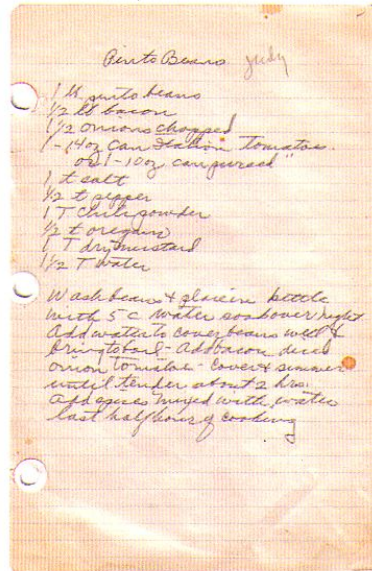 Pinto Beans Judy
1 lb pinto beans
1/2 lb bacon
1 1/2 onions chopped
1 - 14oz can Italian tomatoes.
or 1 - 10oz can pureed "
1 t salt
1/2 t pepper
1 T chili powder
1/2 t oregano
1 T dry mustard
1 1/2 T water
Wash beans & place in kettle
with 5 c water soak over night
Add water to cover beans well &
bring to boil - Add bacon diced
onion tomatoe - cover & simmer
until tender about 2 hrs.
Add spices mixed with water
last half hour of cooking